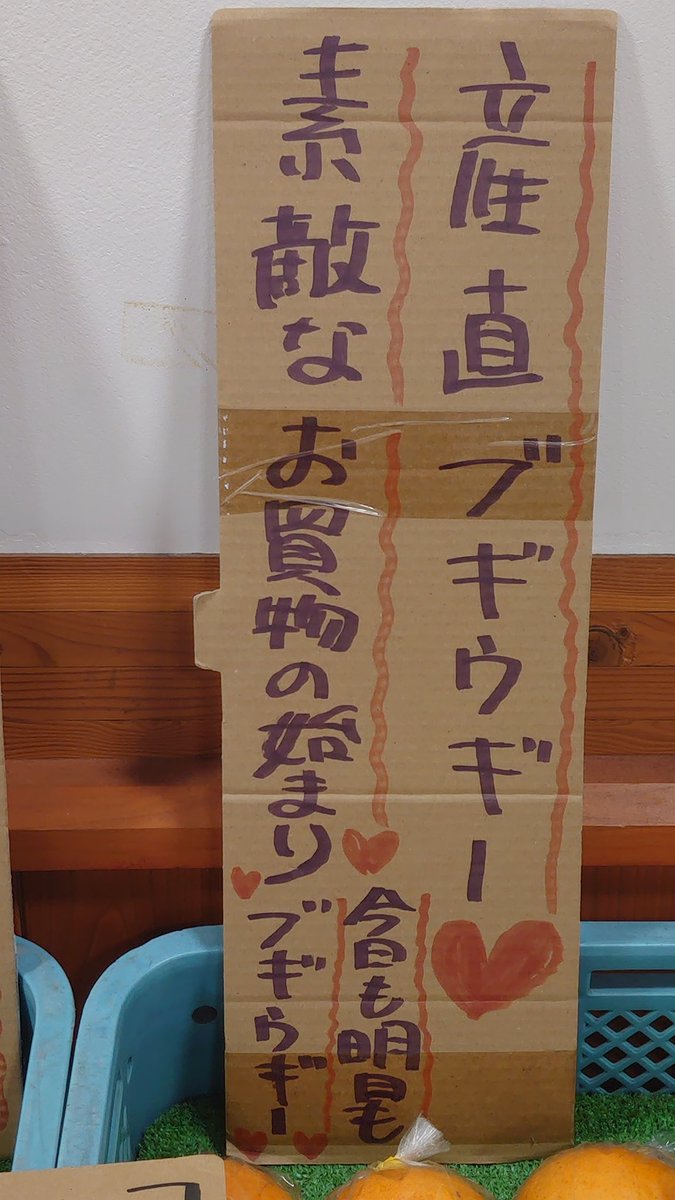 産直ブギウギー
素敵なお買物の始まり
今日も明日も
ブギウギー